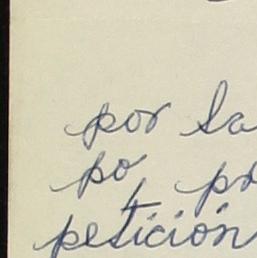 por la
po, pr
petición